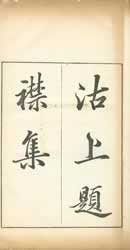 沽上題
襟集